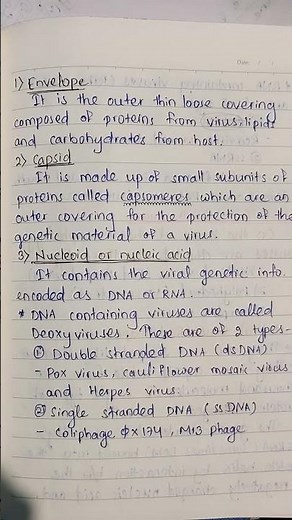 Date
1) Envelope
It is the outer thin loose covering
composed of proteins from virus, lipids
and carbohydrates from host.
2) Capsid
It is made up of small subunits of
proteins called capsomeres which are an
outer covering for the protection of the
genetic material of a virus.
3) Nucleoid or nucleic acid
It contains the viral genetic info.
encoded as DNA or RNA.
* DNA containing viruses are called
Deoxyviruses. These are of 2 types-
① Double stranded DNA (dsDNA)
- Pox virus, cauliflower mosaic virus
and Herpes virus.
② Single stranded DNA (ssDNA)
- Coliphage ϕ×174, M13 phage